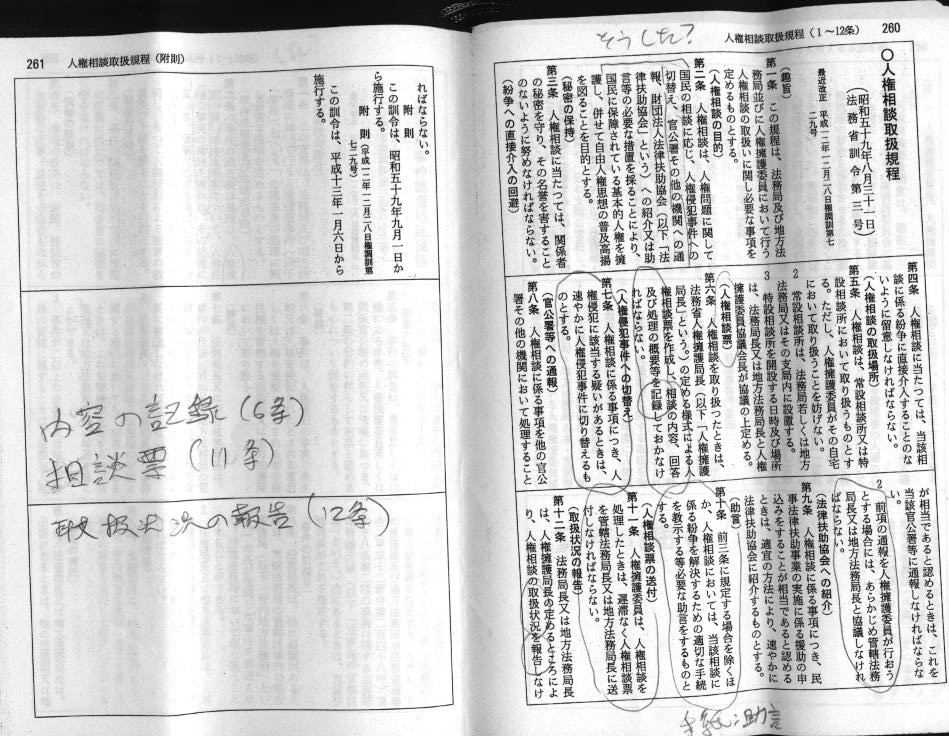 そうした？
人権相談取扱規程（1～12条） 260
〇人権相談取扱規程
（昭和五十九年八月三十一日）
（法務省訓令第三号）
最近改正 平成一二年一二月二八日権調訓第七
二九号
（趣旨）
第一条 この規程は、法務局及び地方法
務局並びに人権擁護委員において行う
人権相談の取扱いに関し必要な事項を
定めるものとする。
（人権相談の目的）
第二条 人権相談は、人権問題に関して
国民の相談に応じ、人権侵犯事件への
切替え、官公署その他の機関への通
報、財団法人法律扶助協会（以下「法
律扶助協会」という）への紹介又は助
言等の必要な措置を採ることにより、
国民に保障されている基本的人権を擁
護し、併せて自由人権思想の普及高揚
を図ることを目的とする。
（秘密の保持）
第三条 人権相談に当たつては、関係者
の秘密を守り、その名誉を害すること
のないように努めなければならない。
（紛争への直接介入の回避）
第四条 人権相談に当たつては、当該相
談に係る紛争に直接介入することのな
いように留意しなければならない。
（人権相談の取扱場所）
第五条 人権相談は、常設相談所又は特
設相談所において取り扱うものとす
る。ただし、人権擁護委員がその自宅
において取り扱うことを妨げない。
2 常設相談所は、法務局若しくは地方
法務局又はその支局内に設置する。
3 特設相談所を開設する日時及び場所
は、法務局長又は地方法務局長と人権
擁護委員協議会長が協議の上定める。
（人権相談票）
第六条 人権相談を取り扱つたときは、
法務省人権擁護局長（以下「人権擁護
局長」という。）の定める様式による人
権相談票を作成し、相談の内容、回答
及び処理の概要等を記録しておかなけ
ればならない。
（人権侵犯事件への切替え）
第七条 人権相談に係る事項につき、人
権侵犯に該当する疑いがあるときは、
速やかに人権侵犯事件に切り替えるも
のとする。
（官公署等への通報）
第八条 人権相談に係る事項を他の官公
署その他の機関において処理すること
が相当であると認めるときは、これを
当該官公署等に通報しなければならな
い。
2 前項の通報を人権擁護委員が行おう
とする場合には、あらかじめ管轄法務
局長又は地方法務局長と協議しなけれ
ばならない。
（法律扶助協会への紹介）
第九条 人権相談に係る事項につき、民
事法律扶助事業の実施に係る援助の申
込みをすることが相当であると認める
ときは、適宜の方法により、速やかに
法律扶助協会に紹介するものとする。
（助言）
第十条 前三条に規定する場合を除くほ
か、人権相談においては、当該相談に
係る紛争を解決するための適切な手続
を教示する等必要な助言をするものと
する。
（人権相談票の送付）
第十一条 人権擁護委員は、人権相談を
処理したときは、遅滞なく人権相談票
を管轄法務局長又は地方法務局長に送
付しなければならない。
（取扱状況の報告）
第十二条 法務局長又は地方法務局長
は、人権擁護局長の定めるところによ
り、人権相談の取扱状況を報告しなけ
手続・助言
261 人権相談取扱規程（附則）
ればならない。
附 則
この訓令は、昭和五十九年九月一日か
ら施行する。
附 則（平成一二年一二月二八日権調訓第
七二九号）
この訓令は、平成十三年一月六日から
施行する。
内容の記録（6条）
相談票（11条）
取扱状況の報告（12条）